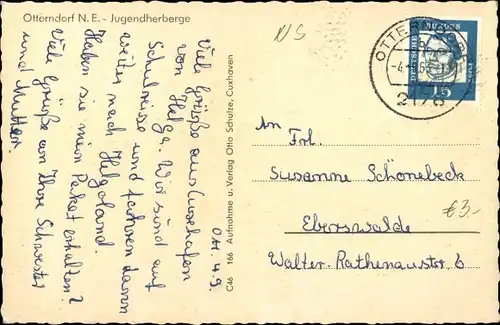 Otterndorf N. E. - Jugendherberge
N/S
OTTERNDORF
2178
DEUTSCHE BUNDESPOST
15
O.M. 4.9.
Viele Grüße aus Cuxhaven
von Helga. Wir sind auf
Schulreise und fahren dann
weiter nach Helgoland.
Haben sie mein Paket erhalten?
Viele Grüße an Ihre Schwester
und Mutter.
C46 166 Aufnahme u. Verlag Otto Schulze, Cuxhaven
An Frl.
Susanne Schönebeck
Eberswalde
Walter-Rathenaustr. 6
€3.-